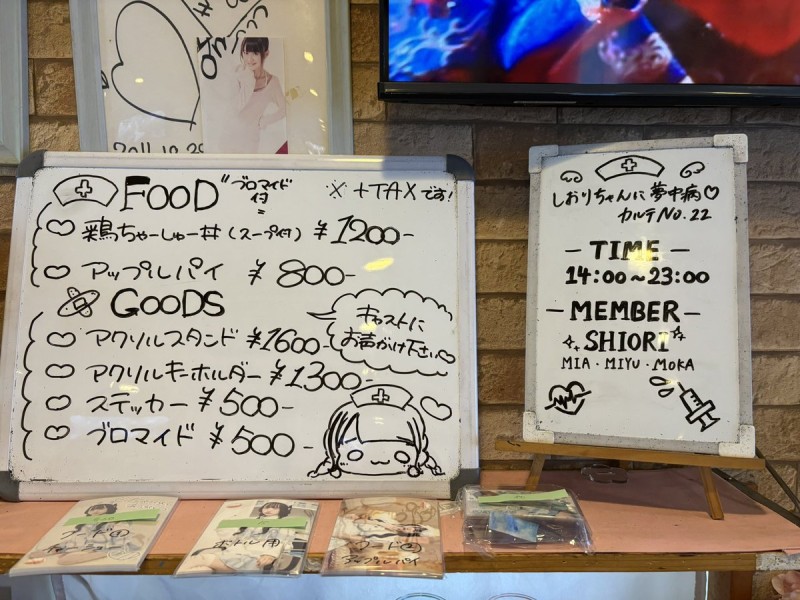 2011.10.29
FOOD
"ブロマイド付"
※+TAXです!
鶏ちゃーしゅー丼(スープ付) ¥1200-
アップルパイ ¥800-
GOODS
アクリルスタンド ¥1600-
アクリルキーホルダー ¥1300-
ステッカー ¥500-
ブロマイド ¥500-
キャストに
お声がけ下さい
しおりちゃんに夢中病♡
カルテNo.22
-TIME-
14:00~23:00
-MEMBER-
SHIORI
MIA・MIYU・MOKA
フード用
ボトル用
フード用
アップルパイ